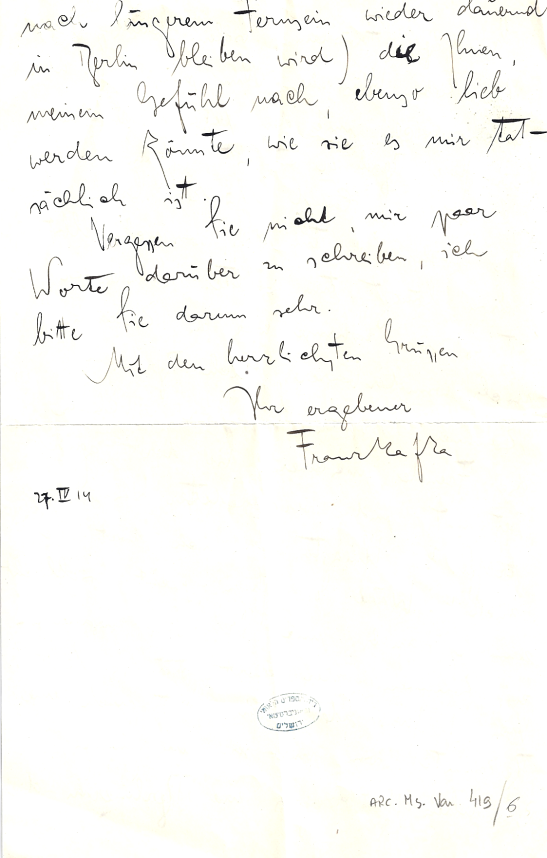 nach längerem Fernsein wieder dauernd
in Berlin bleiben wird) die Ihnen,
meinem Gefühl nach, ebenso lieb
werden könnte, wie sie es mir tat-
sächlich ist.
Vergessen Sie nicht, mir paar
Worte darüber zu schreiben, ich
bitte Sie darum sehr.
Mit den herzlichsten Grüssen
Ihr ergebener
Franz Kafka
27. IV 14
ירושלים
ARC. Ms. Var. 419/6